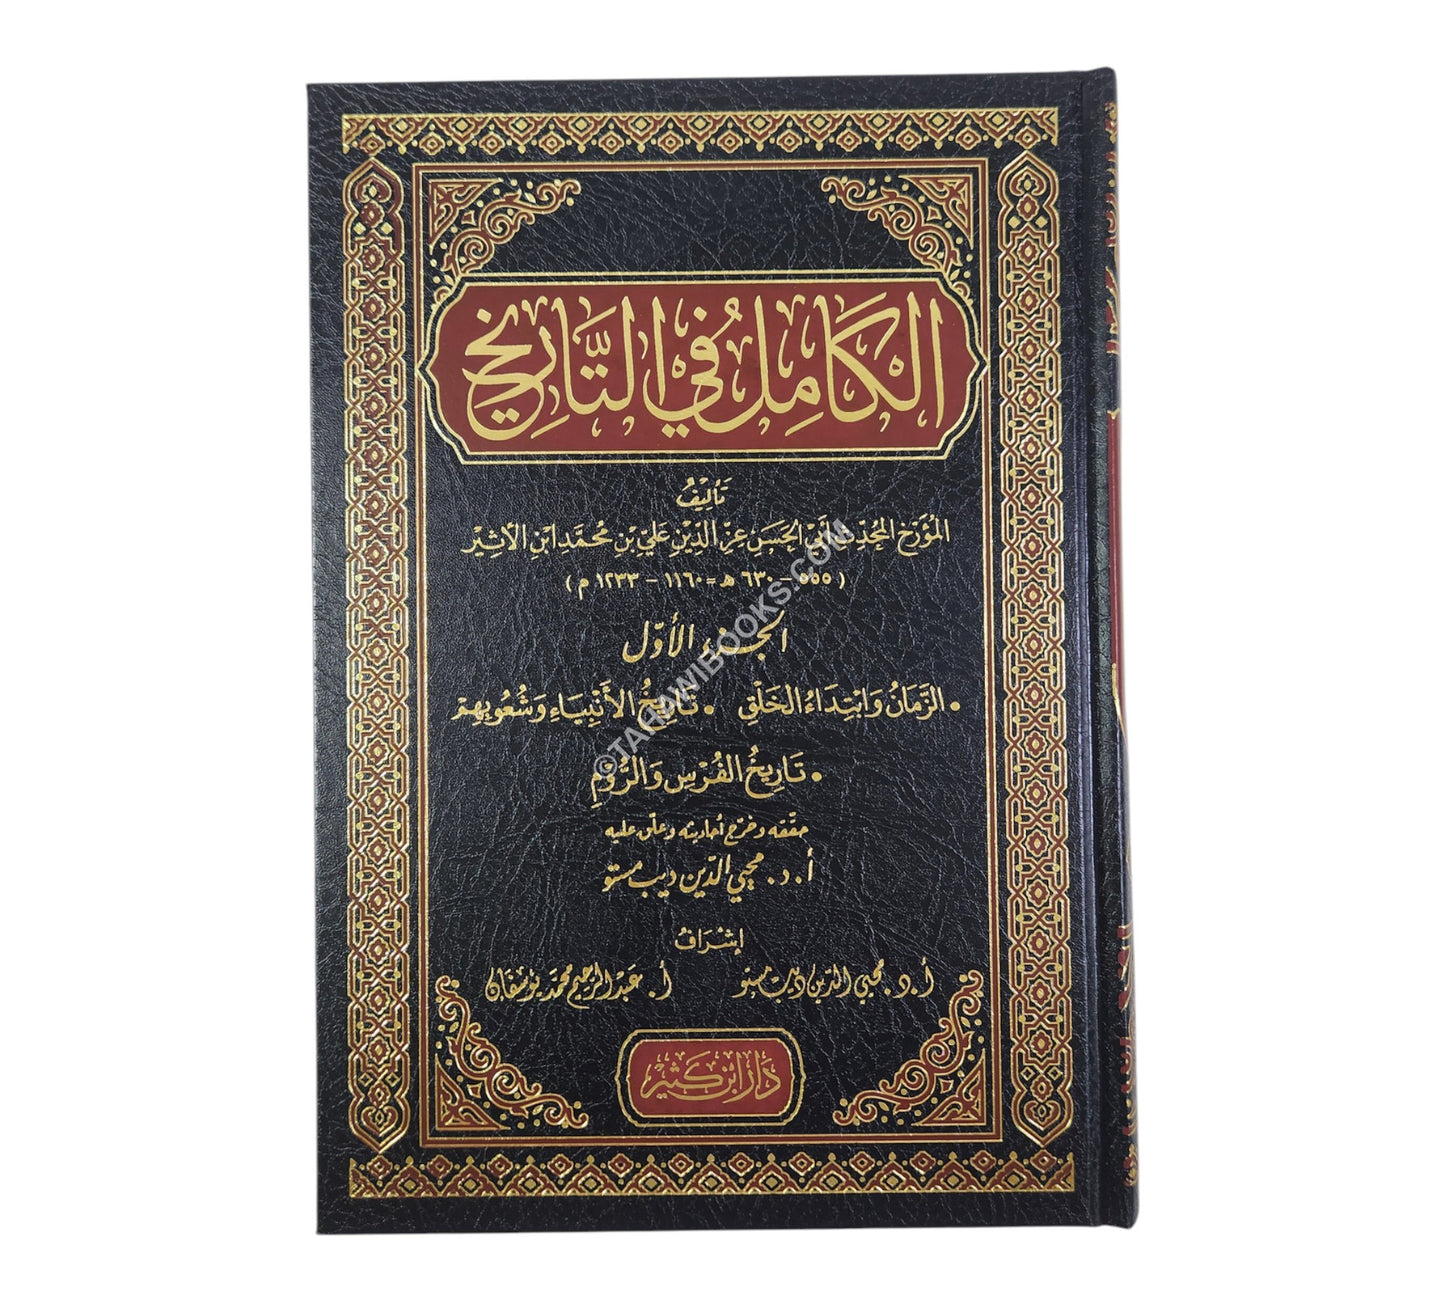 الكَامِل فِي التَّارِيخ
تَأليفُ
المُؤرّخ المُحدّث أبي الحَسَن عِزّ الدّين عَليّ بْن مُحمَّد ابْن الأَثِيْر
(٥٥٥ - ٦٣٠ هـ = ١١٦٠ - ١٢٣٣ م)
الجزء الأوّل
• الزَّمَانُ وَابْتِدَاءُ الخَلْقِ • تَارِيخُ الأَنْبِيَاءِ وَشُعُوبِهِمْ
• تَارِيخُ الفُرْسِ وَالرُّومِ
حقّقه وخرّج أحاديثه وعلّق عليه
أ.د. محيي الدّين ديب مستو
إشرَافُ
أ.د. محيي الدّين ديب مستو أ. عَبْد الرّحيم محمّد يوسفان
دَار ابْن كَثِيْر
©TAHAWIBOOKS.COM